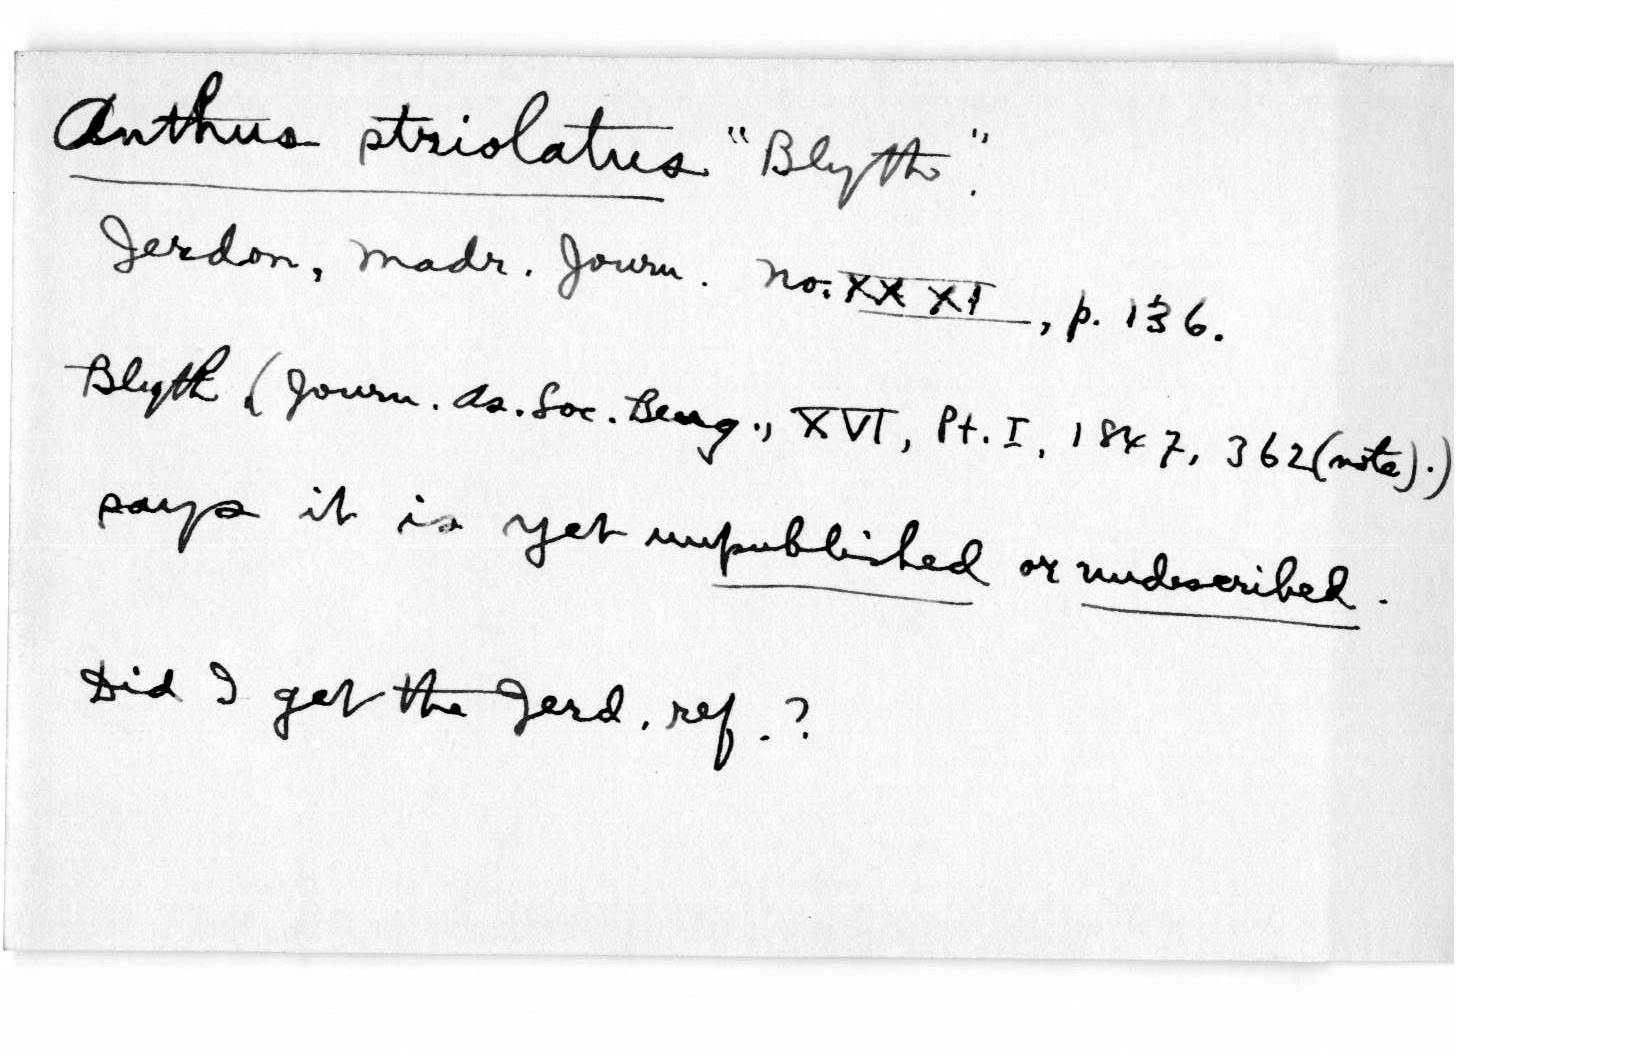 Anthus striolatus "Blyth".
Jerdon, Madr. Journ. No. XXXI, p. 136.
Blyth (Journ. As. Soc. Beng., XVI, Pt. I, 1847, 362 (note).)
says it is yet unpublished or undescribed.
Did I get the Jerd. ref.?